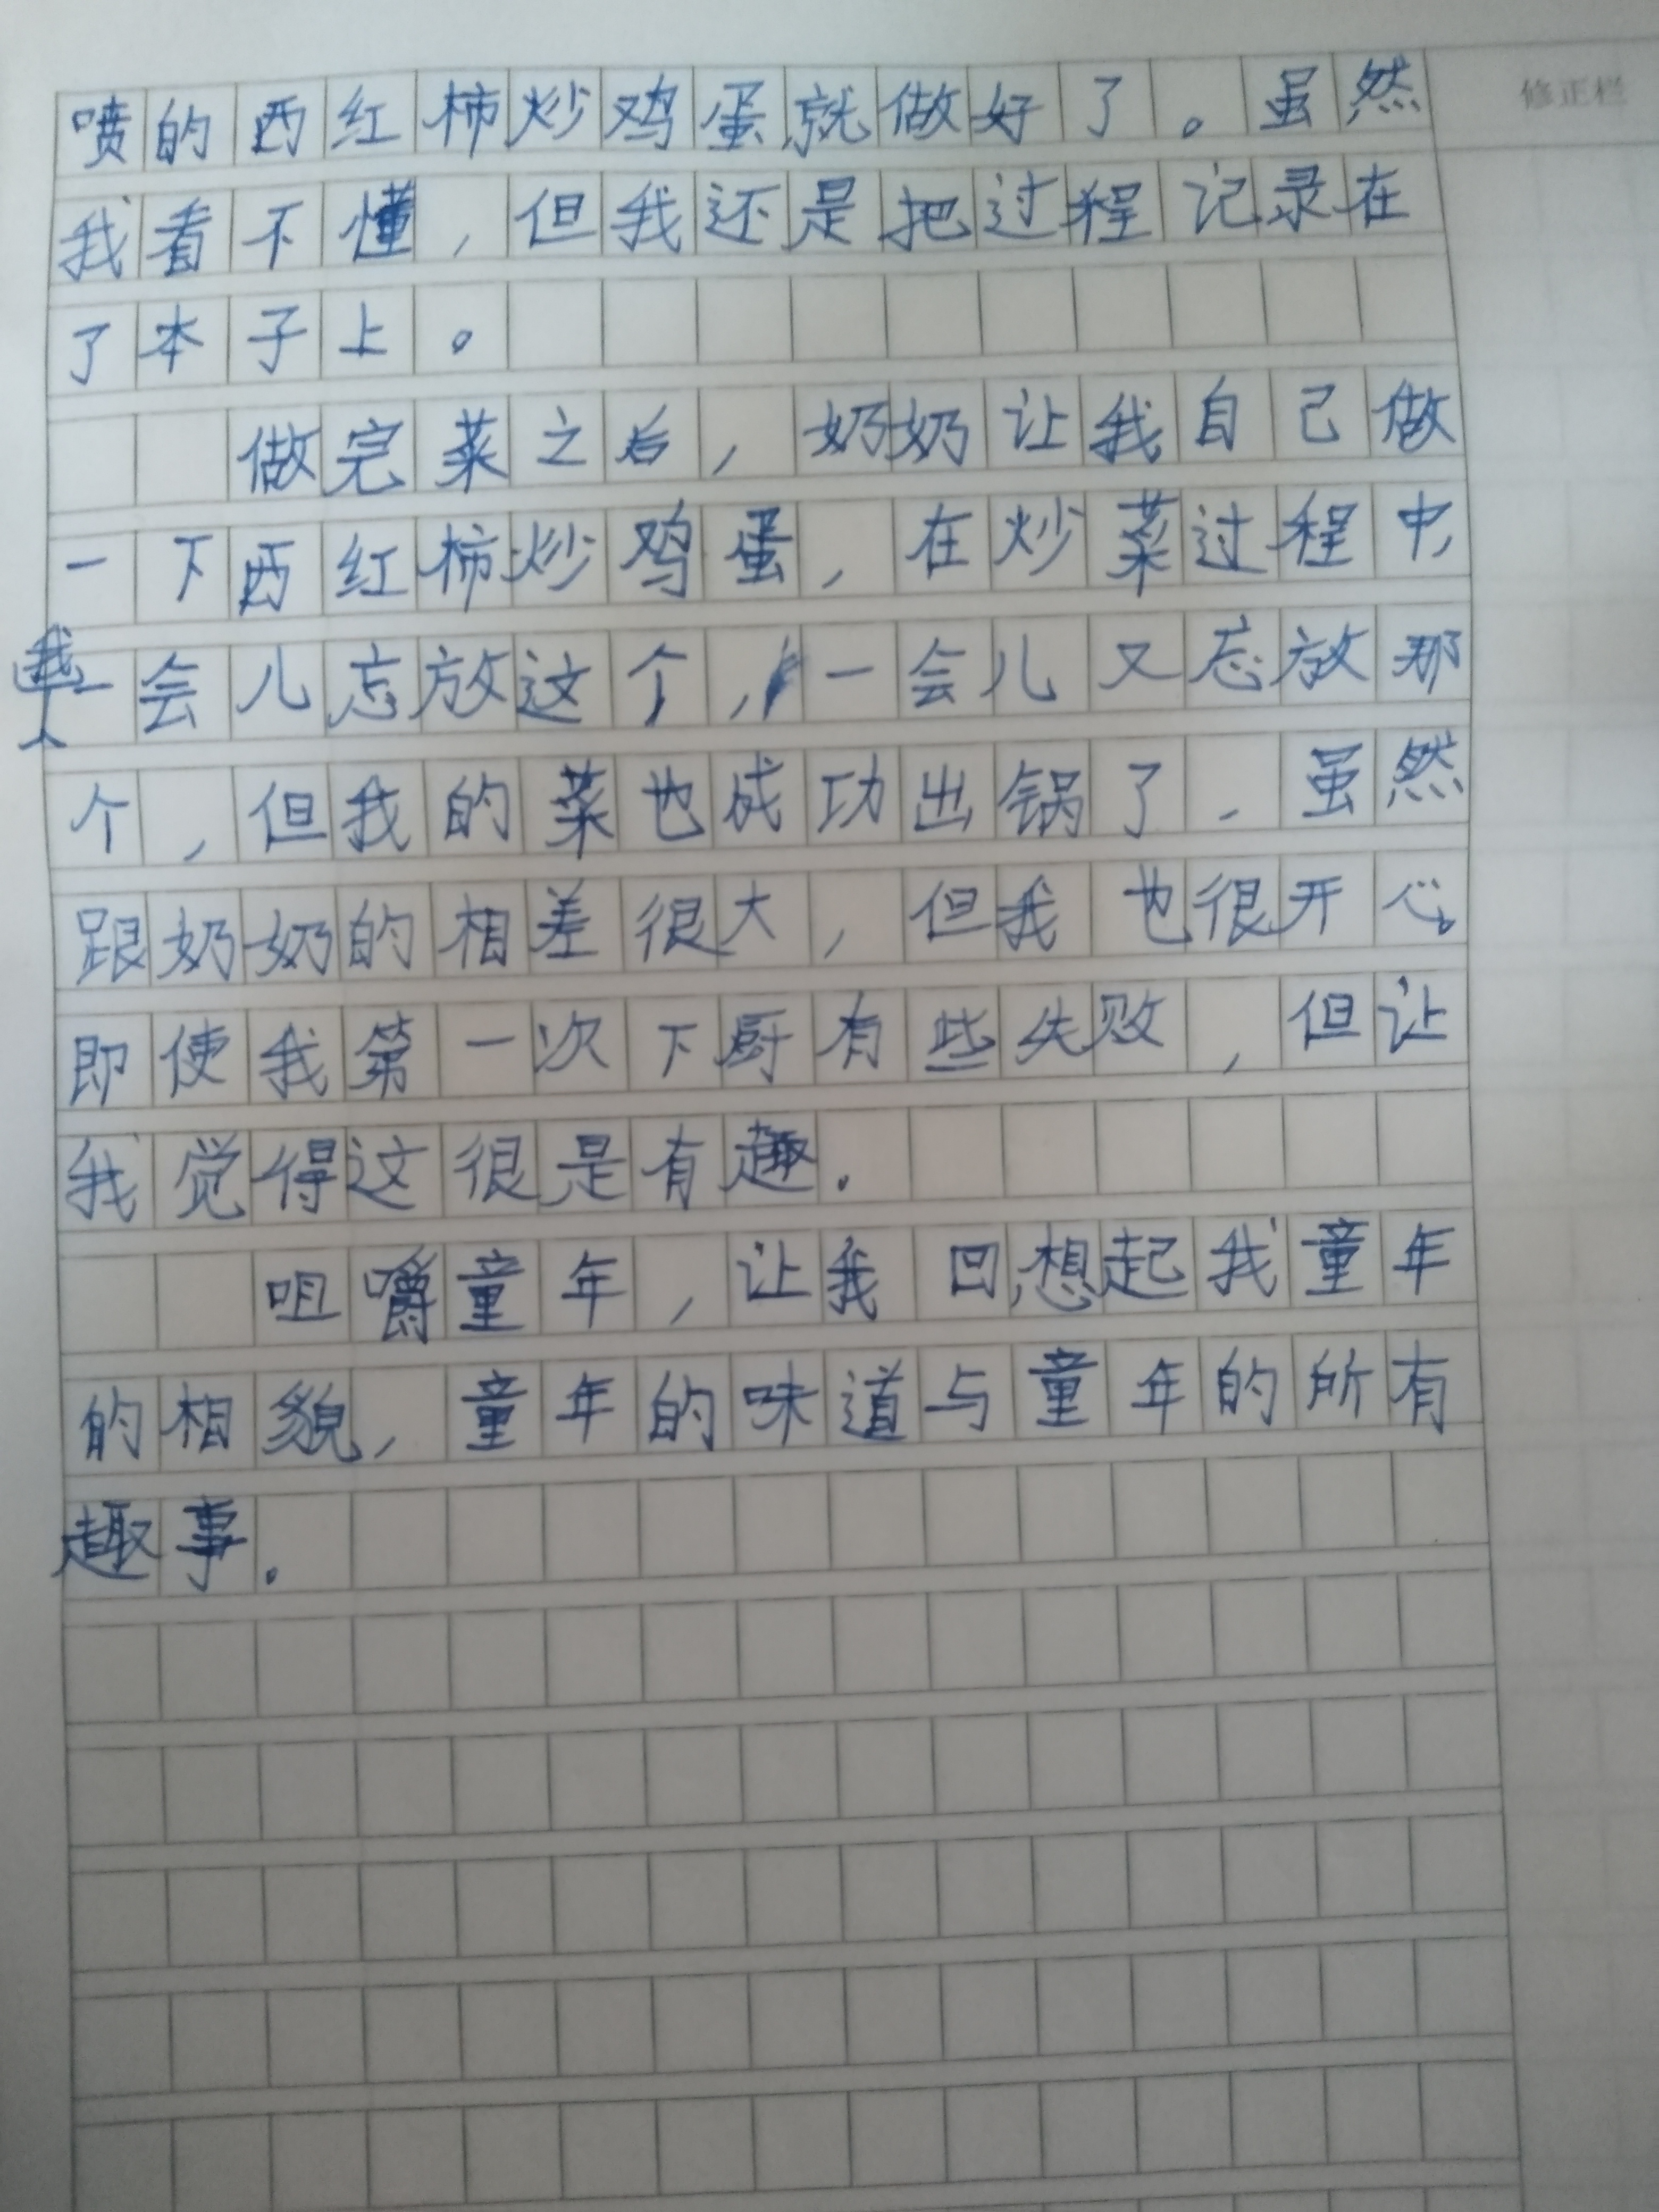 修正栏
喷的西红柿炒鸡蛋就做好了。虽然
我看不懂，但我还是把过程记录在
了本子上。
做完菜之后，奶奶让我自己做
一下西红柿炒鸡蛋，在炒菜过程中，
我一会儿忘放这个，一会儿又忘放那
个，但我的菜也成功出锅了，虽然
跟奶奶的相差很大，但我也很开心。
即使我第一次下厨有些失败，但让
我觉得这很是有趣.
咀嚼童年，让我回想起我童年
的相貌，童年的味道与童年的所有
趣事.